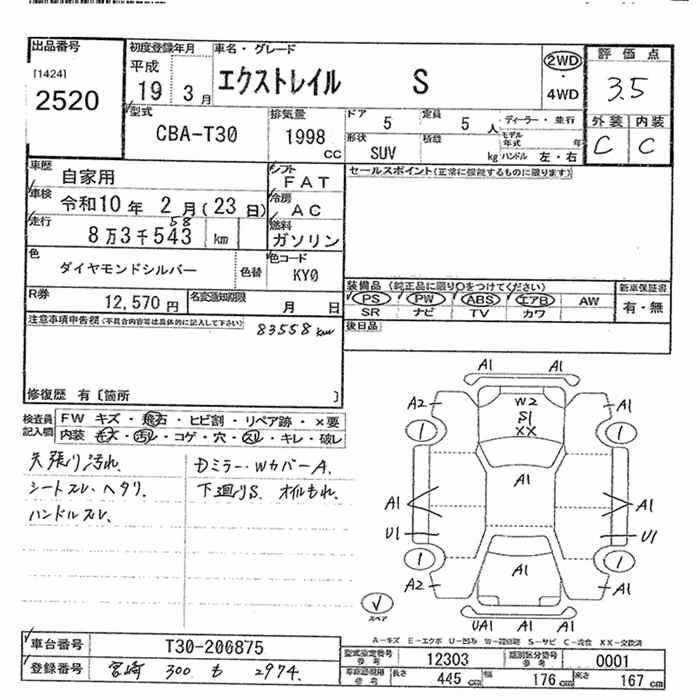 出品番号
[1424]
2520
初度登録年月
平成
19 3月
車名・グレード
エクストレイル S
2WD
・
4WD
評価点
3.5
外装 内装
C C
型式
CBA-T30
排気量
1998
CC
ドア
5
定員
5 人
形状
SUV
積載
kg
ディーラー・並行
モデル年式 年
ハンドル 左・右
車歴
自家用
車検
令和10年 2月(23日)
走行
58
8万3千543 km
シフト
FAT
冷房
AC
燃料
ガソリン
セールスポイント(正常に機能するものに限ります)
色
ダイヤモンドシルバー
色替
色コード
KY0
R券
12,570円
名変通知期限
月 日
装備品 (純正品に限り○をつけてください)
PS PW ABS エアB AW
SR ナビ TV カワ
新車保証書
有・無
後日品
注意事項申告欄(不具合内容等は具体的に記入して下さい)
83558km
修復歴 有〔箇所 〕
検査員
記入欄
FW キズ・飛石・ヒビ割・リペア跡・×要
内装 キズ・汚レ・コゲ・穴・スレ・キレ・破レ
天張り汚れ.
シートスレ・ヘタリ.
ハンドルスレ.
Dミラー・WカバーA.
下廻りS. オイルもれ.
A1 A1
A2 A1
W2
S1
XX
1 1
A1
A1 A1
U1 U1
1 1
A1
A2 A1
UA1 A1 A1
スペア
A-キズ E-エクボ U-凹み W-補修跡 S-サビ C-腐食 XX-交換済
車台番号
T30-206875
登録番号
宮崎 300 も 2974
型式指定番号
参考
12303
類別区分番号
参考
0001
車庫証明用
参考
長さ
445 cm
幅
176 cm
高さ
167 cm